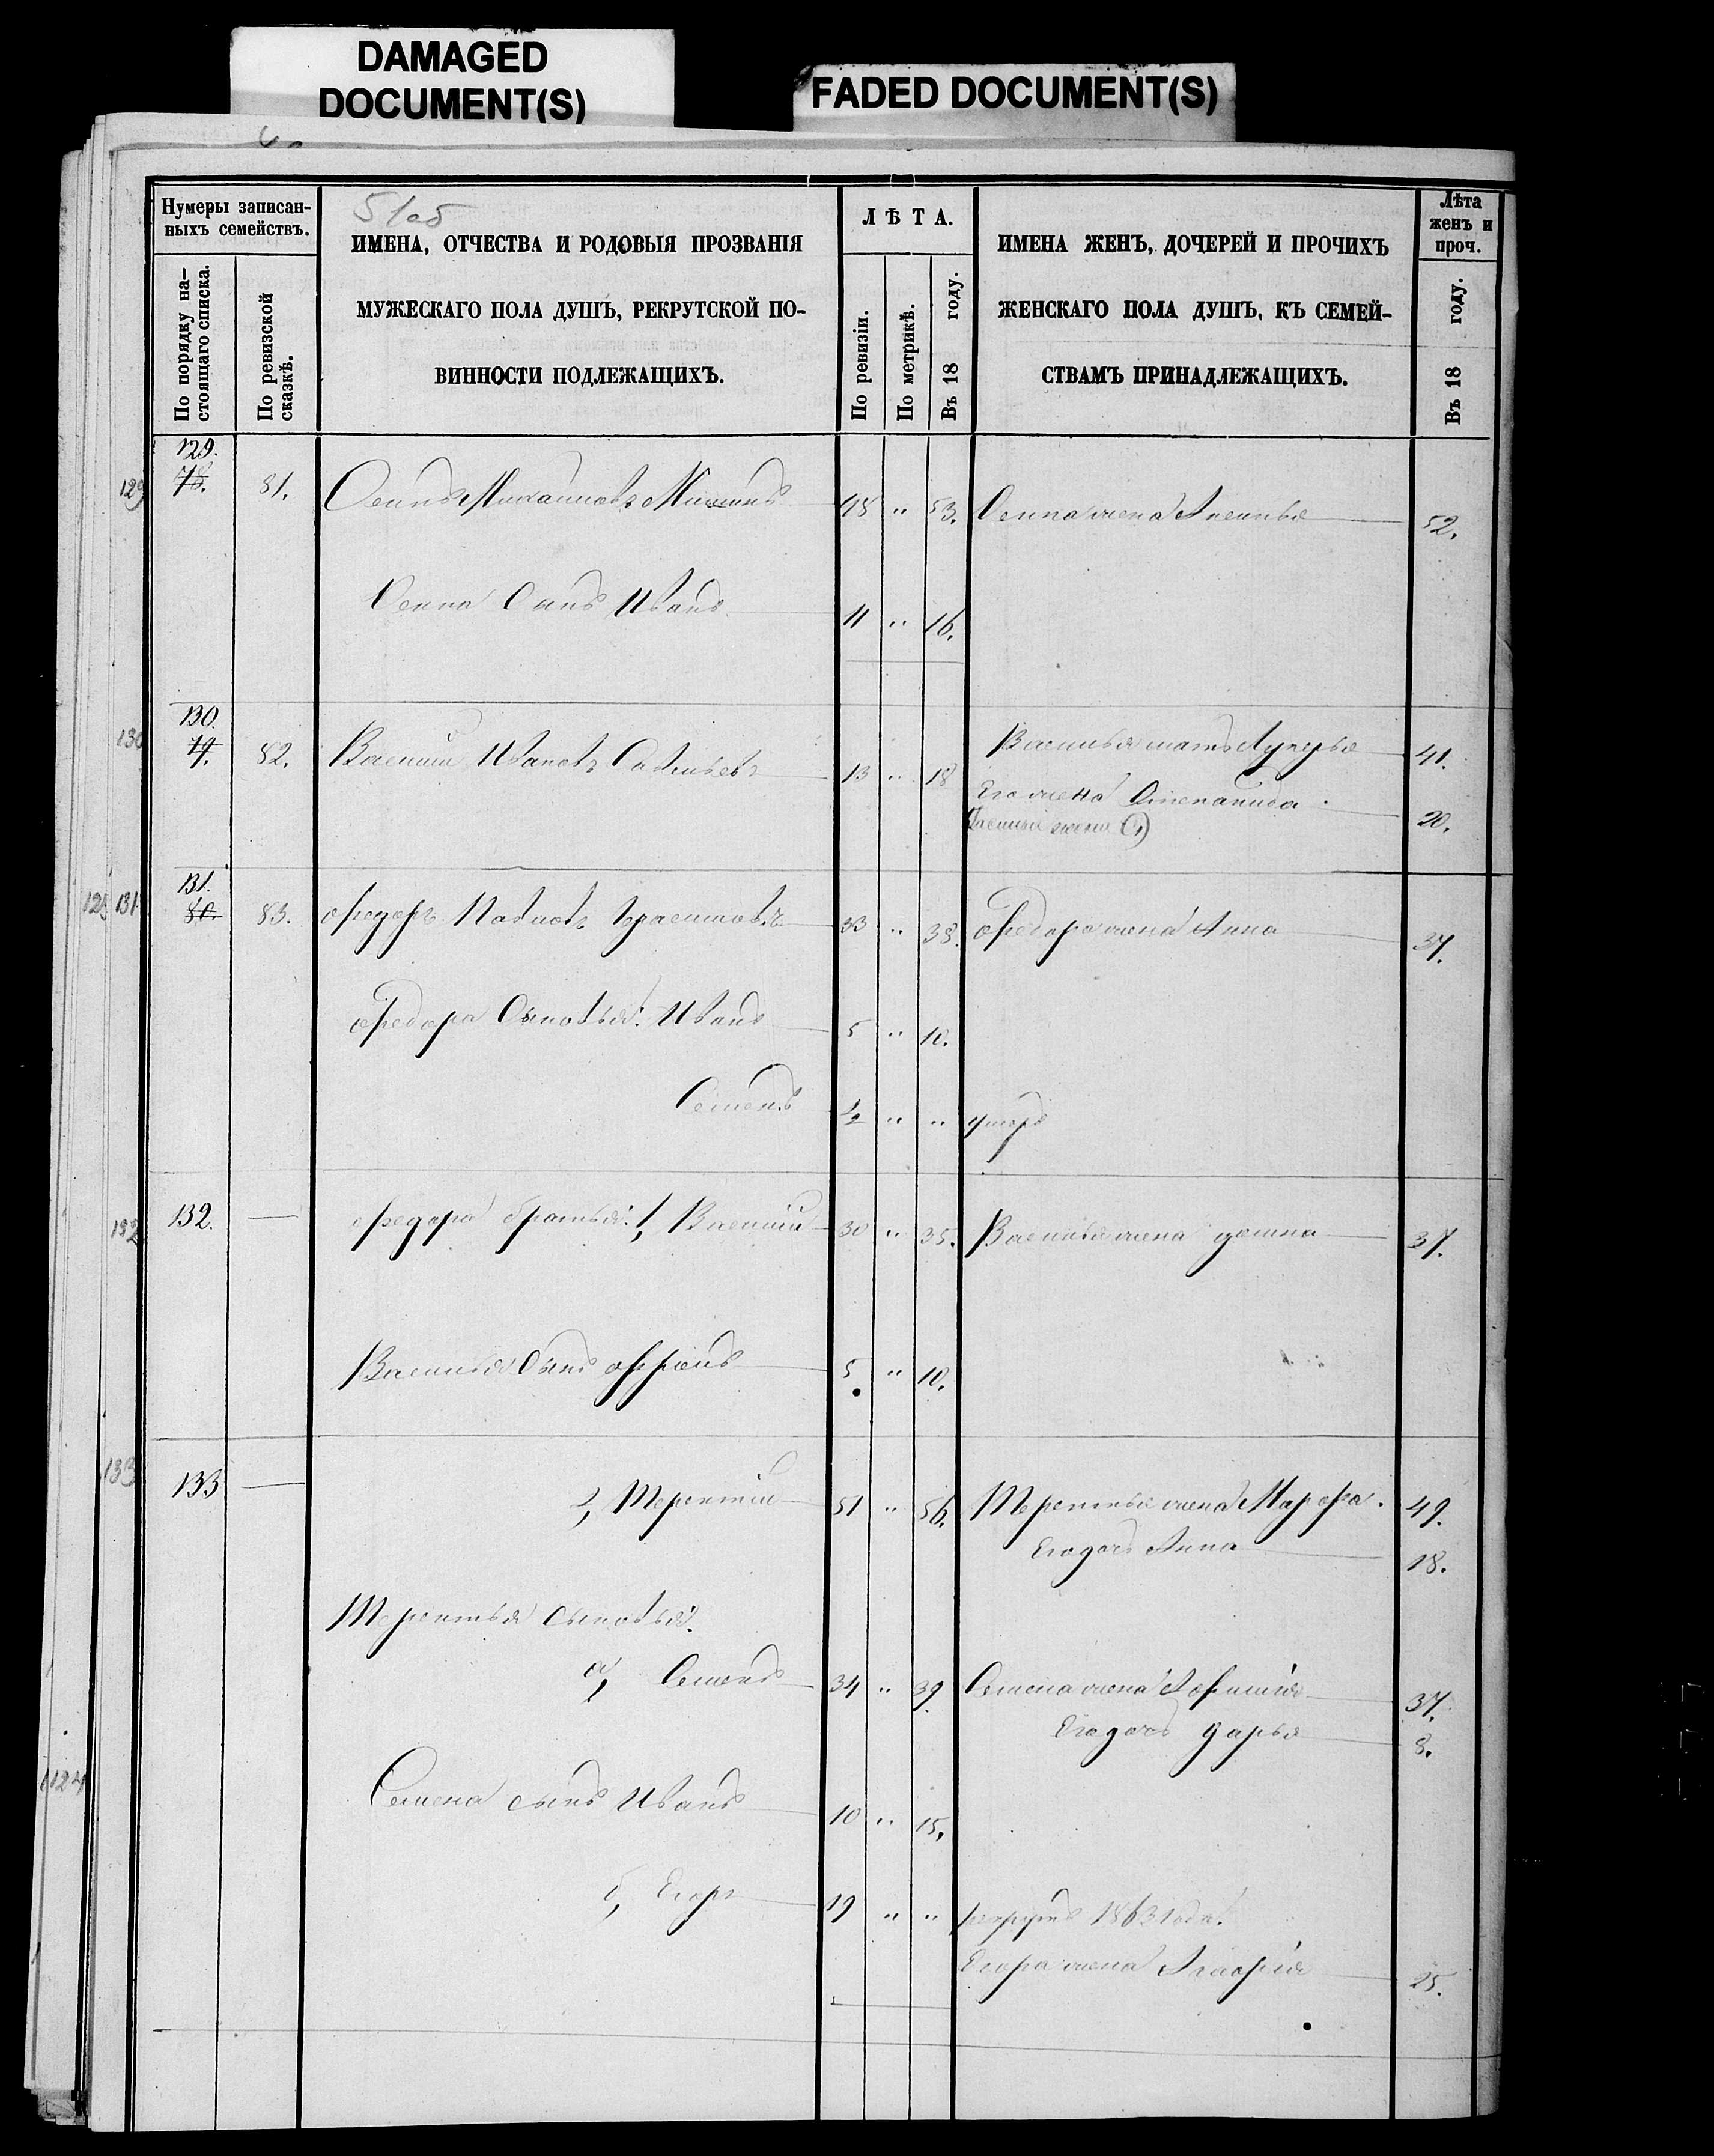 DAMAGED
DOCUMENT(S)
FADED DOCUMENT(S)
51об
Нумеры записан-
ныхъ семействъ.
По порядку на-
стоящаго списка.
По ревизской
сказкѣ.
ИМЕНА, ОТЧЕСТВА И РОДОВЫЯ ПРОЗВАНІЯ
МУЖЕСКАГО ПОЛА ДУШЪ, РЕКРУТСКОЙ ПО-
ВИННОСТИ ПОДЛЕЖАЩИХЪ.
ЛѢТА.
По ревизіи.
По метрикѣ.
Въ 18 году.
ИМЕНА ЖЕНЪ, ДОЧЕРЕЙ И ПРОЧИХЪ
ЖЕНСКАГО ПОЛА ДУШЪ, КЪ СЕМЕЙ-
СТВАМЪ ПРИНАДЛЕЖАЩИХЪ.
Лѣта
женъ и
проч.
Въ 18 году.
129.
129 78. 81. Осипъ Михайловъ 48 " 53. Осипа жена Аксинья 52.
Осипа Сынъ Иванъ 11 " 16.
130.
130 79. 82. Василій Ивановъ Савельевъ 13 " 18 Василья мать Лукерья 41.
Его жена Степанида 20.
131.
131 80. 83. Федоръ Павловъ 33 " 38. Федора жена Анна 37.
Федора Сыновья: Иванъ 5 " 10.
Семенъ 1/2 " " умеръ
132 132. — Федора братья: 1, Василій 30 " 35. Василья жена Домна 37.
Василья Сынъ Ефимъ 5 " 10.
133 133 — 2, Терентій 51 " 56. Терентья жена Марфа. 49.
Его дочь Анна 18.
Терентья Сыновья:
а, Семенъ 34 " 39 Семена жена 37.
Его дочь Дарья 8.
124
Семена сынъ Иванъ 10 " 15.
б, Егоръ 19 " " рекрутъ 1863 года.
Егора жена Агафія 25.